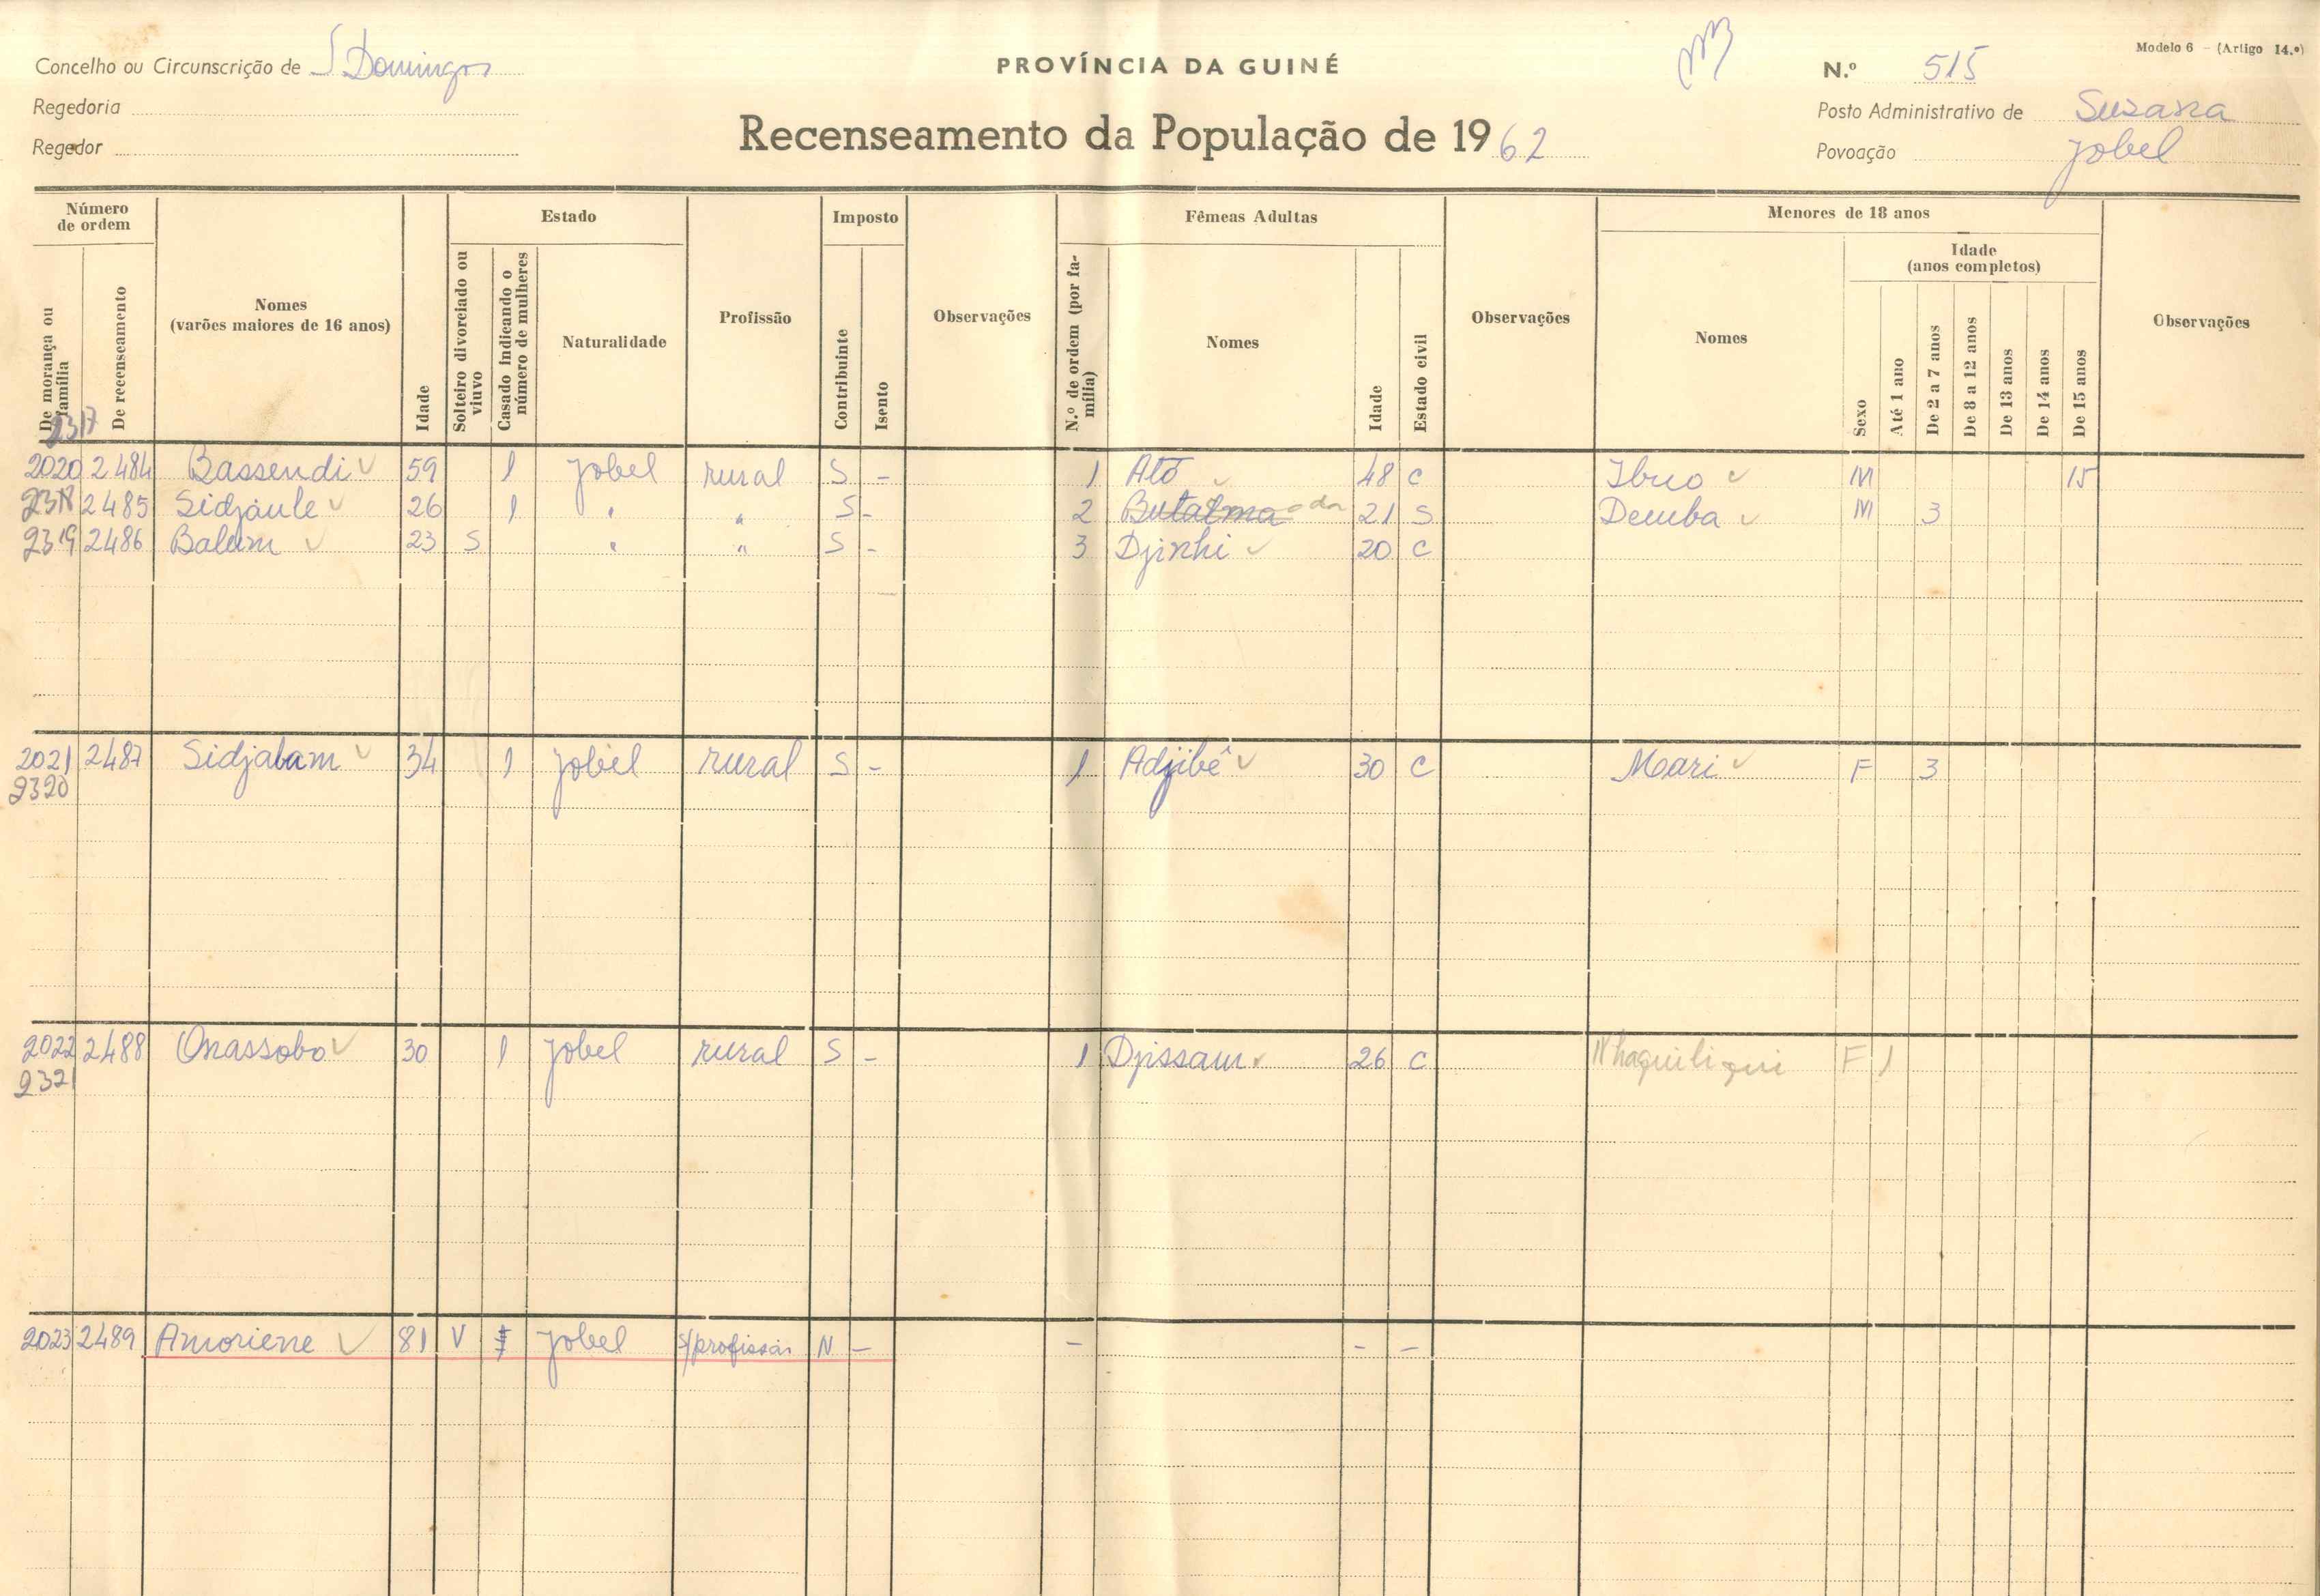 Modelo 6 - (Artigo 14.º)
Concelho ou Circunscrição de S Domingos
PROVÍNCIA DA GUINÉ
N.º 515
Regedoria
Recenseamento da População de 1962
Posto Administrativo de Suzana
Regedor
Povoação Jobel
Número de ordem
De morança ou família
De recenseamento
Nomes (varões maiores de 16 anos)
Idade
Estado
Solteiro divorciado ou viuvo
Casado indicando o número de mulheres
Naturalidade
Profissão
Imposto
Contribuinte
Isento
Observações
Fêmeas Adultas
N.º de ordem (por família)
Nomes
Idade
Estado civil
Observações
Menores de 18 anos
Nomes
Sexo
Idade (anos completos)
Até 1 ano
De 2 a 7 anos
De 8 a 12 anos
De 13 anos
De 14 anos
De 15 anos
Observações
2317
2020 2484 Bassendi 59 1 Jobel rural S - 1 Ató 48 C Ibuo M 15
2318 2485 Sidjaule 26 1 " " S - 2 21 S Demba M 3
2319 2486 Balam 23 S " " S - 3 Djinhi 20 C
2021 2487 Sidjabam 34 1 Jobel rural S - 1 Adjibê 30 C Moari F 3
2320
2022 2488 Onassobo 30 1 Jobel rural S - 1 Djissam 26 C Nhaquiliqui F 1
2321
2023 2489 Amoriene 81 V Jobel s/profissão N - - - -